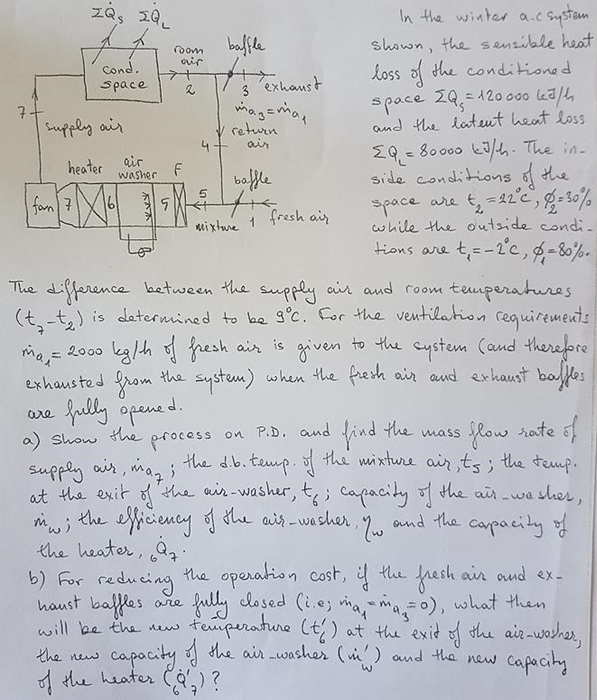 ΣQ̇s ΣQ̇L
cond. space
room air
baffle
2
3 exhaust
ṁa3 = ṁa1
return air
4
7
supply air
heater air washer F
baffle
fan 7 6 5
5
mixture 1 fresh air
In the winter a-c system
shown, the sensible heat
loss of the conditioned
space ΣQs = 120 000 kJ/h
and the latent heat loss
ΣQL = 80000 kJ/h. The in-
side conditions of the
space are t2 = 22°C, φ2 = 30%
while the outside condi-
tions are t1 = -2°C, φ1 = 80%.
The difference between the supply air and room temperatures
(t7-t2) is determined to be 9°C. For the ventilation requirements
ṁa1 = 2000 kg/h of fresh air is given to the system (and therefore
exhausted from the system) when the fresh air and exhaust baffles
are fully opened.
a) Show the process on P.D. and find the mass flow rate of
supply air, ṁa7; the d.b. temp. of the mixture air, t5; the temp.
at the exit of the air-washer, t6; capacity of the air-washer,
ṁw; the efficiency of the air-washer, ηw and the capacity of
the heater, 6Q̇7.
b) For reducing the operation cost, if the fresh air and ex-
haust baffles are fully closed (i.e; ṁa1 = ṁa3 = 0), what then
will be the new temperature (t6') at the exit of the air-washer,
the new capacity of the air-washer (ṁw') and the new capacity
of the heater (6Q̇7')?